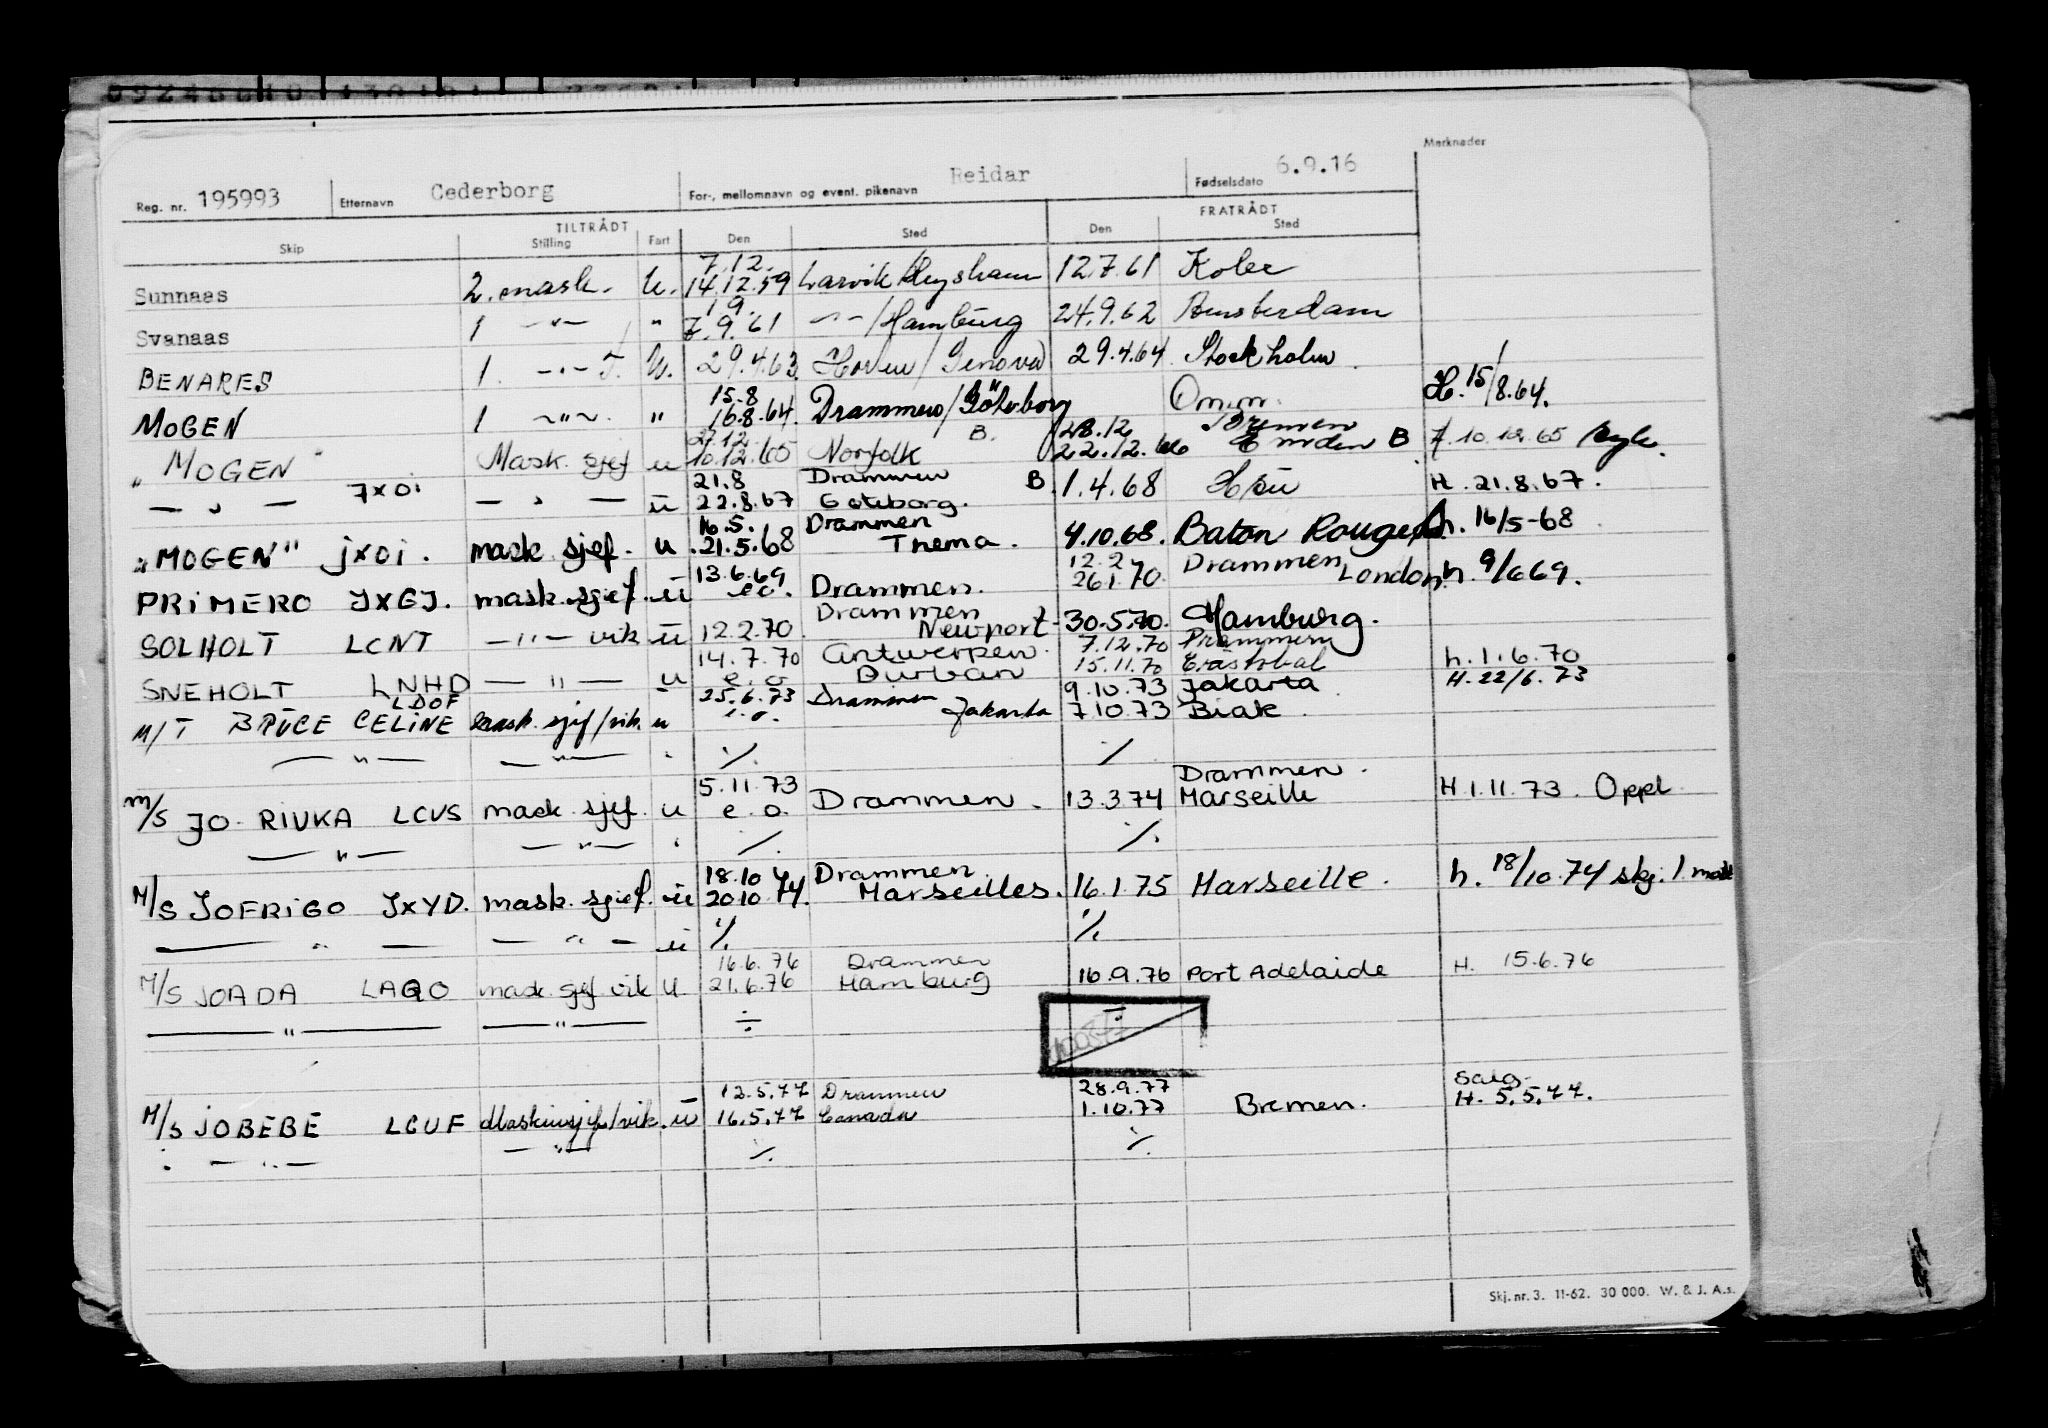 Merknader
Reg. nr. 195993 Etternavn Cederborg For-, mellomnavn og event. pikenavn Reidar Fødselsdato 6.9.16
TILTRÅDT FRATRÅDT
Skip Stilling Fart Den Sted Den Sted
7.12.
Sunnaas 2. mask. U. 14.12.59 Larvik Heysham 12.7.61 Kobe
19.
Svanaas 1 -"- " 7.9.61 -"-/Hamburg 24.9.62 Amsterdam
BENARES 1. -"- U. 29.4.63. Horten/Genova 29.4.64 Stockholm
15.8
MOGEN 1 -"- " 16.8.64. Drammen/Göteborg Omm. H. 15/8.64.
27.12 B. 28.12 Bremen
"MOGEN" Mask. sjef u 10.12.65 Norfolk 22.12.66 Emden B 10.12.65
21.8 Drammen
- " - JXOI - " - u 22.8.67 Göteborg. B. 1.4.68 H. 21.8.67.
16.5. Drammen
"MOGEN" JXOI. mask sjef. u 21.5.68 Thema. 4.10.68. Baton Rouge h. 16/5-68
13.6.69 12.2 Drammen
PRIMERO JXGJ. mask. sjef. u e.o. Drammen. 26.1.70. London h. 9/6 69.
Drammen
SOLHOLT LCNT -"- vik u 12.2.70. Newport 30.5.70. Hamburg.
14.7.70 Antwerpen. 7.12.70 Drammen
SNEHOLT LNHD - " - u e.o Durban 15.11.70 Cristobal h. 1.6.70
LDOF 25.6.73 Drammen 9.10.73 Jakarta H. 22/6.73
M/T BRUCE CELINE mask. sjef/vik. u e.o. Jakarta 7.10.73 Biak.
- " - - " - " ./. ./.
5.11.73 Drammen.
M/S JO RIVKA LCVS mask. sjef. u e.o. Drammen. 13.3.74 Marseille H 1.11.73. Oppl.
- " - - " - " ./. ./.
18.10 Drammen
M/S JOFRIGO JXYD. mask. sjef. u 20.10.74. Marseilles. 16.1.75 Marseille. h. 18/10.74 skj. 1. mask
- " - - " - u ./. ./.
16.6.76 Drammen
M/S JOADA LAQO mask. sjef vik U. 21.6.76 Hamburg 16.9.76 Port Adelaide H. 15.6.76
- " - - " - ÷ ÷
12.5.77 Drammen 28.9.77 Salg.
M/S JOBEBE LCUF Maskinsjef/vik. u 16.5.77 Canada 1.10.77 Bremen. H. 5.5.77.
- " - - " - ./. ./.
Skj. nr. 3. 11-62. 30 000. W. & J. A.s.